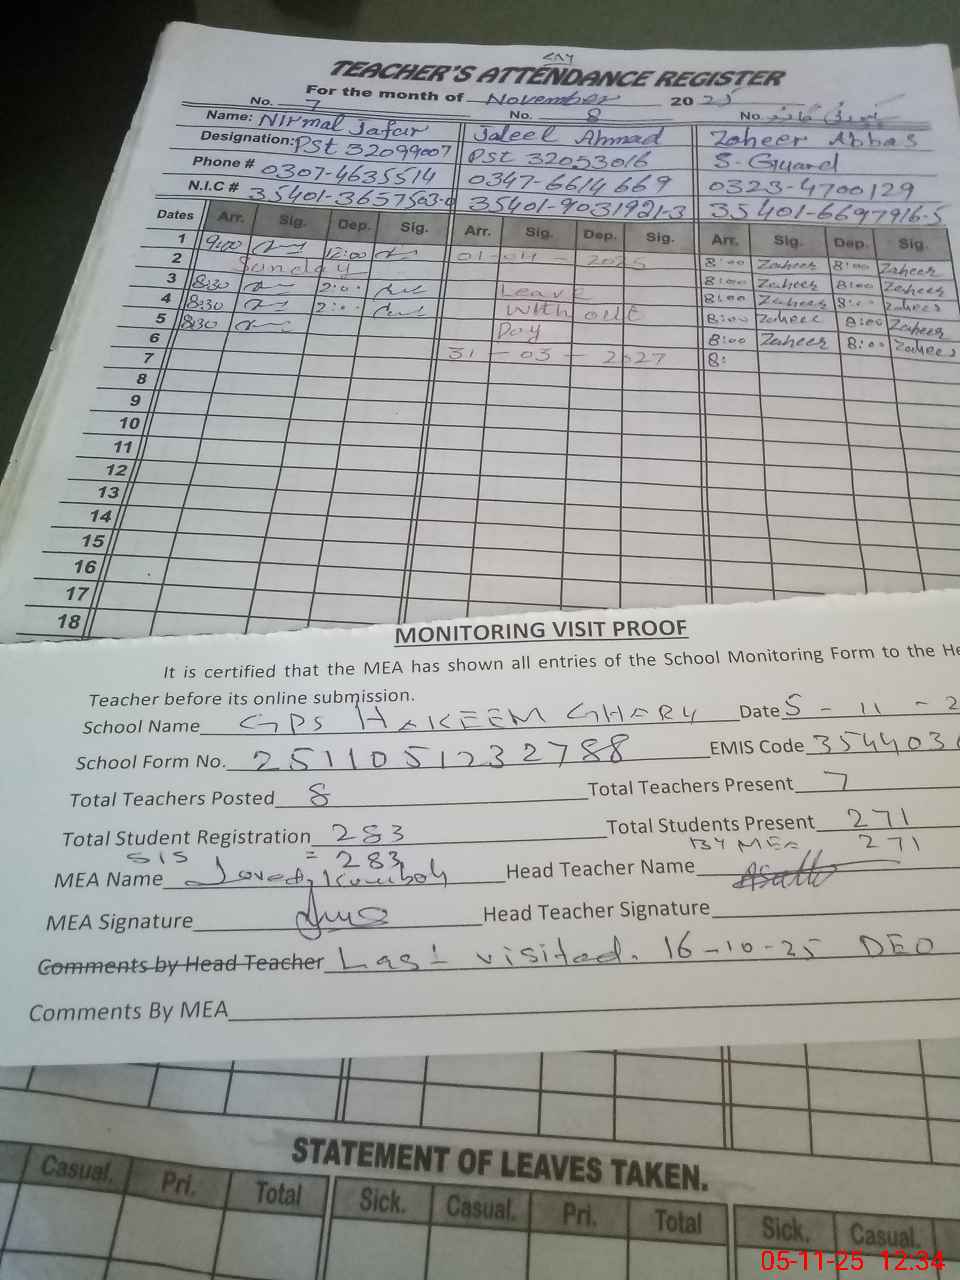 TEACHER'S ATTENDANCE REGISTER
For the month of November 2025
No. 7 No. 8 No
Name: Nirmal Jafar Jaleel Ahmad Zaheer Abbas
Designation: PST 32099007 PST 32053016 S-Guard
Phone # 0307-4635514 0347-6614669 0323-4700129
N.I.C # 35401-3657503-0 35401-9031921-3 35401-6697916-5
Dates Arr. Sig. Dep. Sig. Arr. Sig. Dep. Sig. Arr. Sig. Dep. Sig.
1 9:00 12:00 01-04-2025 8:00 Zaheer 8:00 Zaheer
2 Sunday 8:00 Zaheer 8:00 Zaheer
3 8:30 2:00 Leave 8:00 Zaheer 8:00 Zaheer
4 8:30 2:00 With out 8:00 Zaheer 8:00 Zaheer
5 8:30 Pay 8:00 Zaheer 8:00 Zaheer
6 31-03-2027 8:
7
8
9
10
11
12
13
14
15
16
17
18
MONITORING VISIT PROOF
It is certified that the MEA has shown all entries of the School Monitoring Form to the He
Teacher before its online submission.
School Name GPS HAKEEM GHARY Date 5-11-2
School Form No. 2511051232788 EMIS Code 3544030
Total Teachers Posted 8 Total Teachers Present 7
Total Student Registration 283 Total Students Present 271
SIS = 283 BY MEA 271
MEA Name Javed Head Teacher Name
MEA Signature Head Teacher Signature
Comments by Head Teacher Last visited. 16-10-25 DEO
Comments By MEA
STATEMENT OF LEAVES TAKEN.
Casual. Pri. Total Sick. Casual. Pri. Total Sick. Casual.
05-11-25 12:34